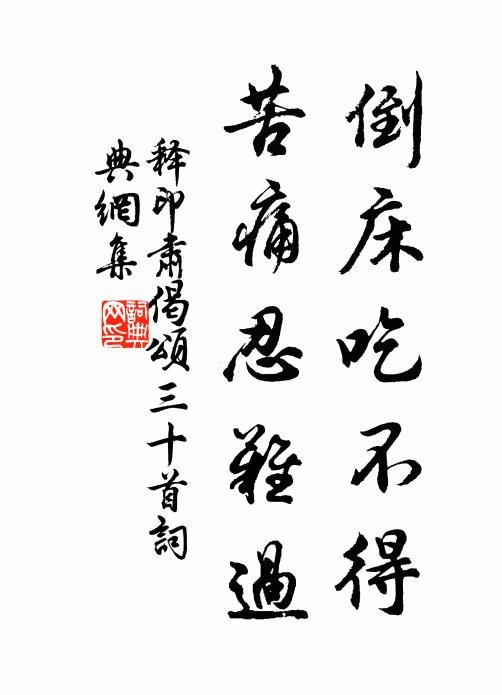 倒床吃不得
苦痛忍難過
释印肃偈頌三十首詞
典網集
詞典
网印